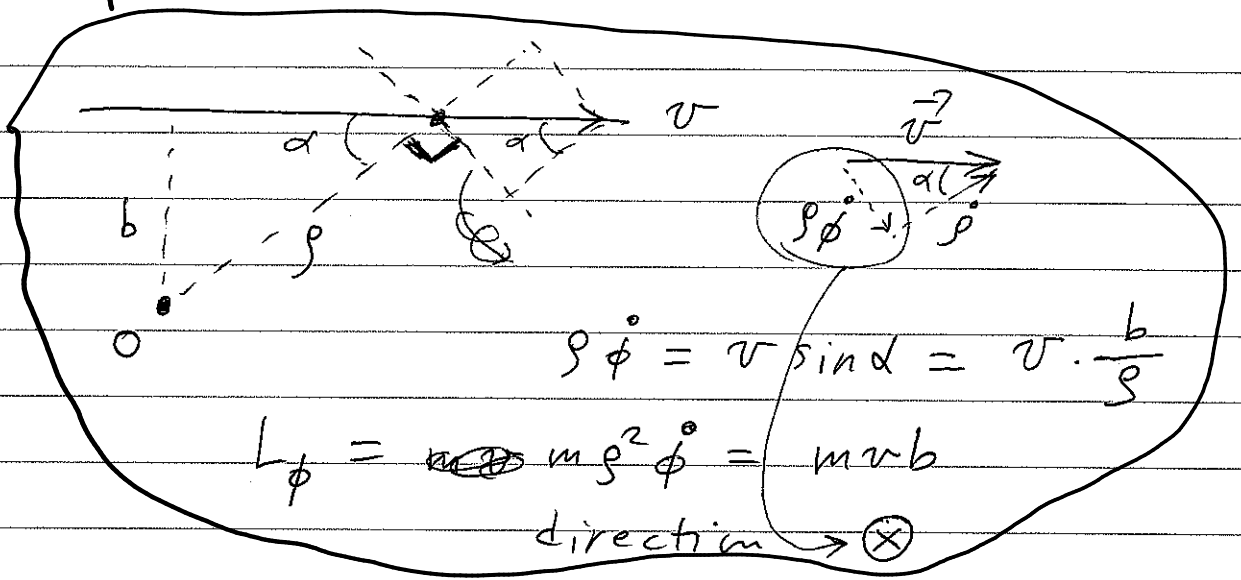 v
α α
b ρ
O
v⃗
α
ρφ̇ ρ̇
ρφ̇ = v sinα = v · b/ρ
L_φ = mρ²φ̇ = mvb
direction → ⊗